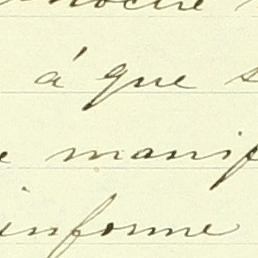 á que s
manif
informe